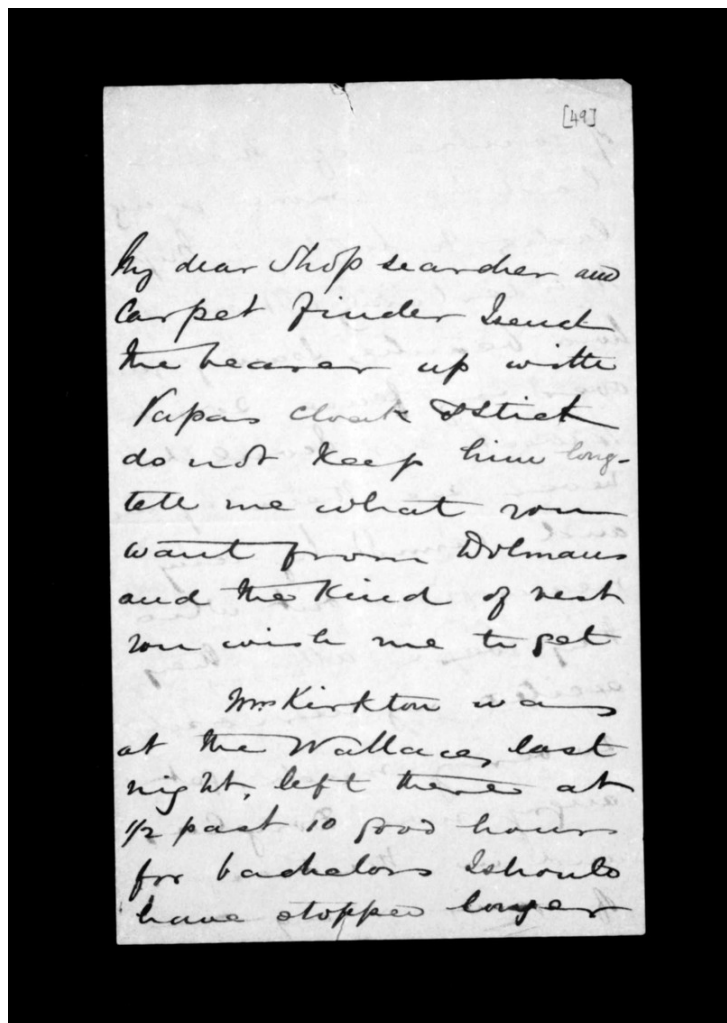 [49]
My dear Shop searcher and
Carpet finder I send
the bearer up with
Papas cloak & stick
do not keep him long -
tell me what you
want from Dolmans
and the kind of vest
you wish me to get
Mrs Kirkton was
at the Wallaces last
night, left there at
1/2 past 10 good hours
for bachelors I should
have stopped longer